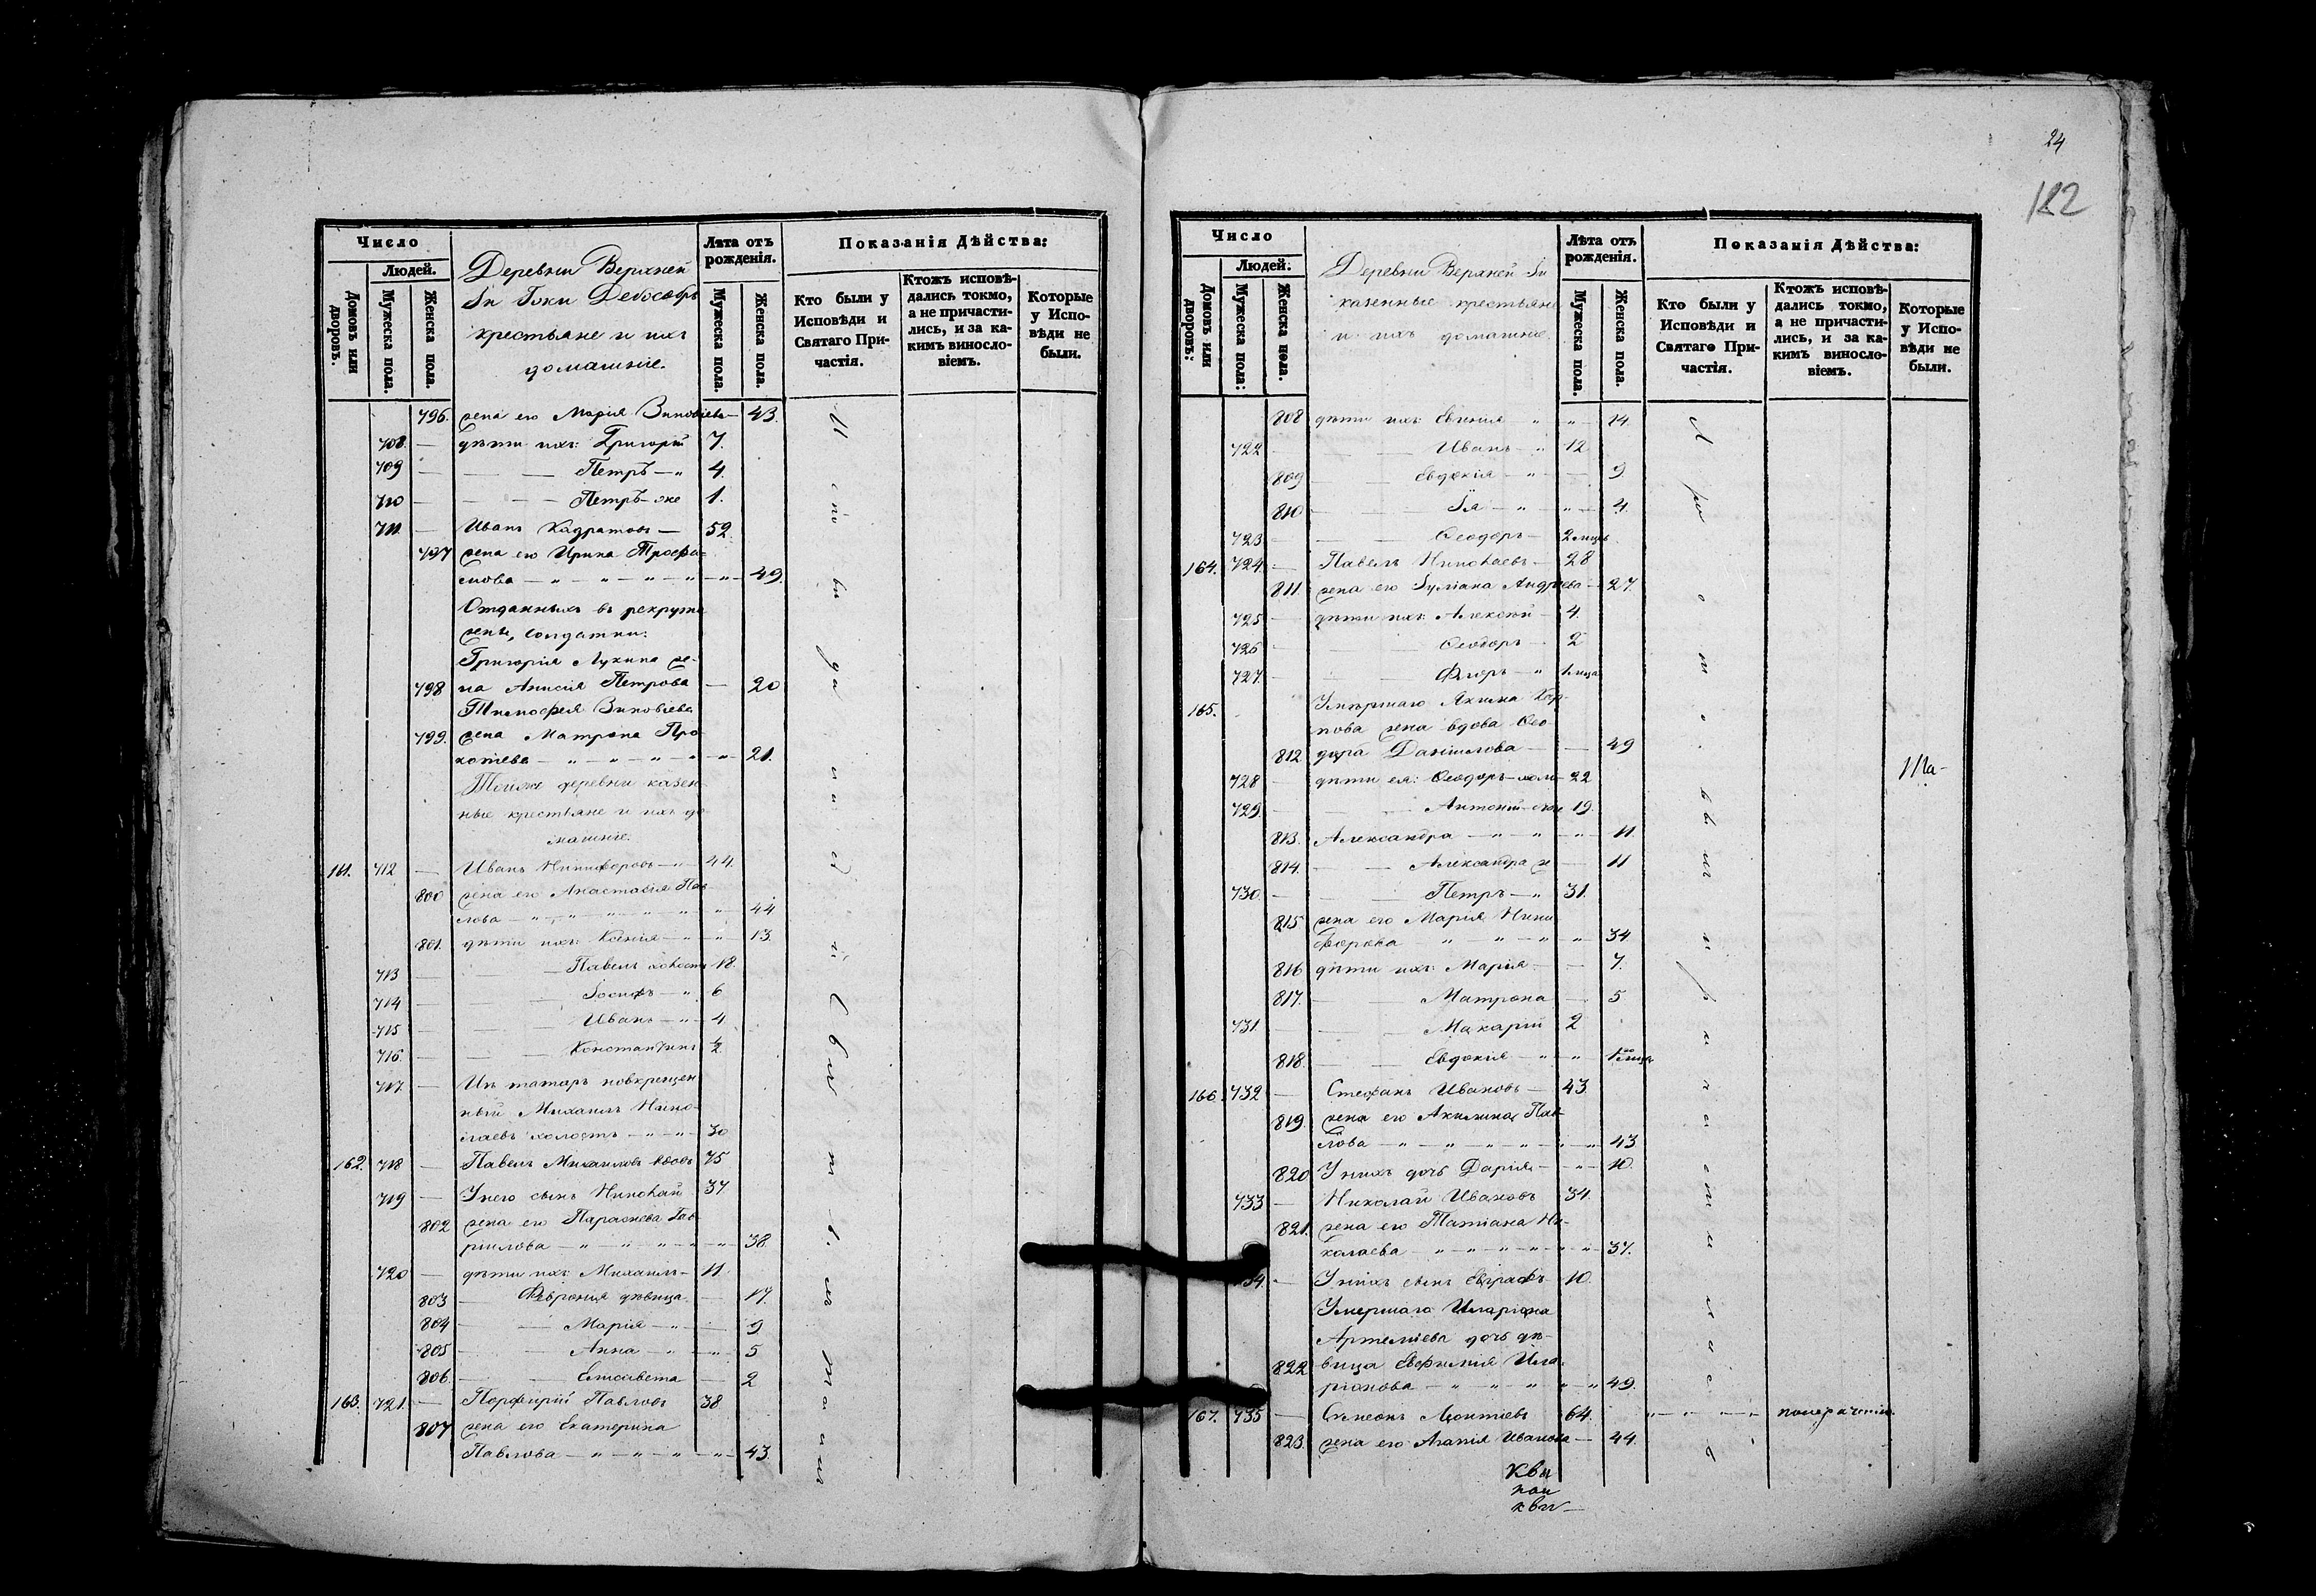 Число
Людей.
Домовъ или дворовъ.
Мужеска пола.
Женска пола.
Деревни Верхней
крестьяне и ихъ
домашніе.
Лѣта отъ рожденія.
Мужеска пола.
Женска пола.
Показанія Дѣйства:
Кто были у Исповѣди и Святаго Причастія.
Ктожъ исповѣдались токмо, а не причастились, и за какимъ винословіемъ.
Которые у Исповѣди не были.
796. жена его Марія Зиновіева — 43.
708. — дѣти ихъ: Григорій 7.
709 — — — Петръ — „ 4.
710 — — — Петръ-же 1.
711. — Иванъ — 52.
797 жена его Ирина Трофи-
мова — „ — „ — „ — „ — „ — 49.
Отданныхъ въ рекруты
жены, солдатки:
Григорія Лукина же-
798 на Анисія Петрова — 20
Тимофея Зиновіева
799. жена Матрона Про-
хотева — „ — „ — „ — „ — 21.
Тойже деревни казен-
ные крестьяне и ихъ до-
машніе.
161. 712 — Иванъ Никифоровъ — „ — 44.
800 жена его Анастасія Пав-
лова — „ — „ — „ — „ — „ — 44
801. дѣти ихъ: Ксенія — „ — „ — 13.
713 — — Павелъ холостъ 18.
714 — — — Іосифъ — „ 6
715 — — — Иванъ — „ — 4
716. — — — Константинъ ½
717. — Изъ татаръ новокрещен
ный Михаилъ Нико-
лаевъ холостъ — „ — „ — 30
162. 718 — Павелъ Михаиловъ вдовъ 75
719 — У него сынъ Николай 37
802 жена его Параскева Гав-
ріилова — „ — „ — „ — „ — „ — 38.
720 — дѣти ихъ: Михаилъ — 11.
803 — Феврония дѣвица — 17.
804 — — Марія — „ — 9
805 — — Анна — „ — „ — 5
806. — — Елисавета — 2
163. 721. — Порфирій Павловъ 38
807 жена его Екатерина
Павлова — „ — „ — „ — „ — 43.
24
122
Число
Людей.
Домовъ или дворовъ:
Мужеска пола:
Женска пола.
Деревни Верхней
казенные крестьяне
и ихъ домашніе.
Лѣта отъ рожденія.
Мужеска пола.
Женска пола.
Показанія Дѣйства:
Кто были у Исповѣди и Святаго Причастія.
Ктожъ исповѣдались токмо, а не причастились, и за какимъ винословіемъ.
Которые у Исповѣди не были.
808 дѣти ихъ: Евгенія — „ „ — 14.
722 — — Иванъ — „ 12
809 — — Евдокія — „ — 9.
810 — — Ія — „ — „ — 4.
723 — — Ѳеодоръ — 2 мѣсц.
164. 724. — Павелъ Николаевъ — 28
811. жена его Іуліана Андреева — 27.
725 — дѣти ихъ: Алексѣй — 4.
726 — — Ѳеодоръ — 2
727. — — Флоръ — „ 1 мца
165. Умершаго Якима Кар-
пова жена вдова Ѳео-
812. дора Даніилова — — 49
728 — дѣти ея: Ѳеодоръ — 22
729. — — Антоній 19.
813. Александра — „ — „ — „ — 11.
814. — — Александра ж — 11
730. — — Петръ — „ 31.
815 жена его Марія Ники-
форова — „ — „ — „ — „ — 34.
816 дѣти ихъ: Марія — — 7.
817. — — Матрона — 5
731. — — Макарій 2
818. — — Евдокія — „ — „ —
166. 732 — Стефанъ Ивановъ — 43
819. жена его Акилина Пав-
лова — „ — „ — „ — „ — „ — 43
820 У нихъ дочь Дарія — „ — 10.
733 — Николай Ивановъ 34.
821. жена его Татіана Ни-
колаева — „ — „ — „ — „ — „ — 37.
734. — У нихъ сынъ Евграфъ 10.
Умершаго Иларіона
Артеміева дочь дѣ-
822 вица Евфимія Ила-
ріонова — „ — „ — „ — „ — „ 49.
167. 735 — Симеонъ Леонтіевъ 64. „ — „ — „ — „
823. жена его Агапія Иванова — 44.